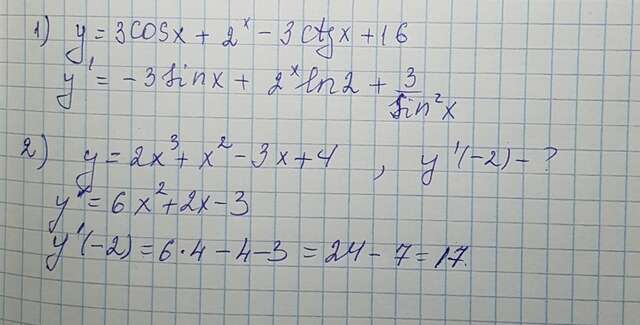 1) y = 3cosx + 2^x - 3ctgx + 16
y' = -3sinx + 2^x ln2 + 3/sin²x
2) y = 2x³ + x² - 3x + 4 , y'(-2) - ?
y' = 6x² + 2x - 3
y'(-2) = 6·4 - 4 - 3 = 24 - 7 = 17.